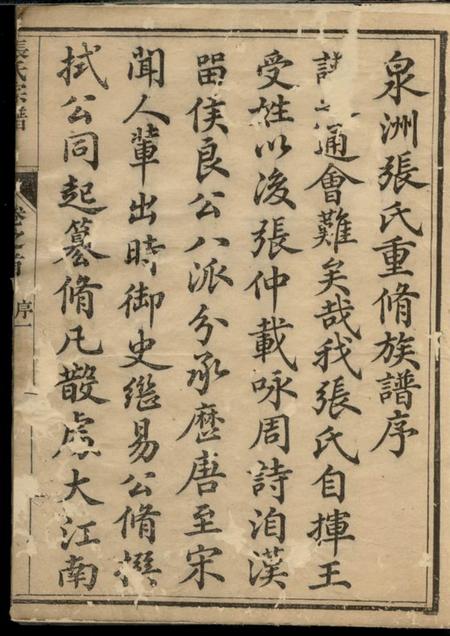 泉洲張氏重脩族譜序
譜 通會難矣哉我張氏自揮王
受姓以後張仲載咏周詩洎漢
畱侯良公八派分承歷唐至宋
聞人輩出時御史繼易公脩撰
拭公同起纂脩凡散處大江南
張氏宗譜
卷之首 序一